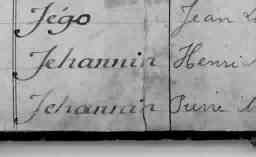 Jégo Jean
Jehannin Henri
Jehannin Pierre